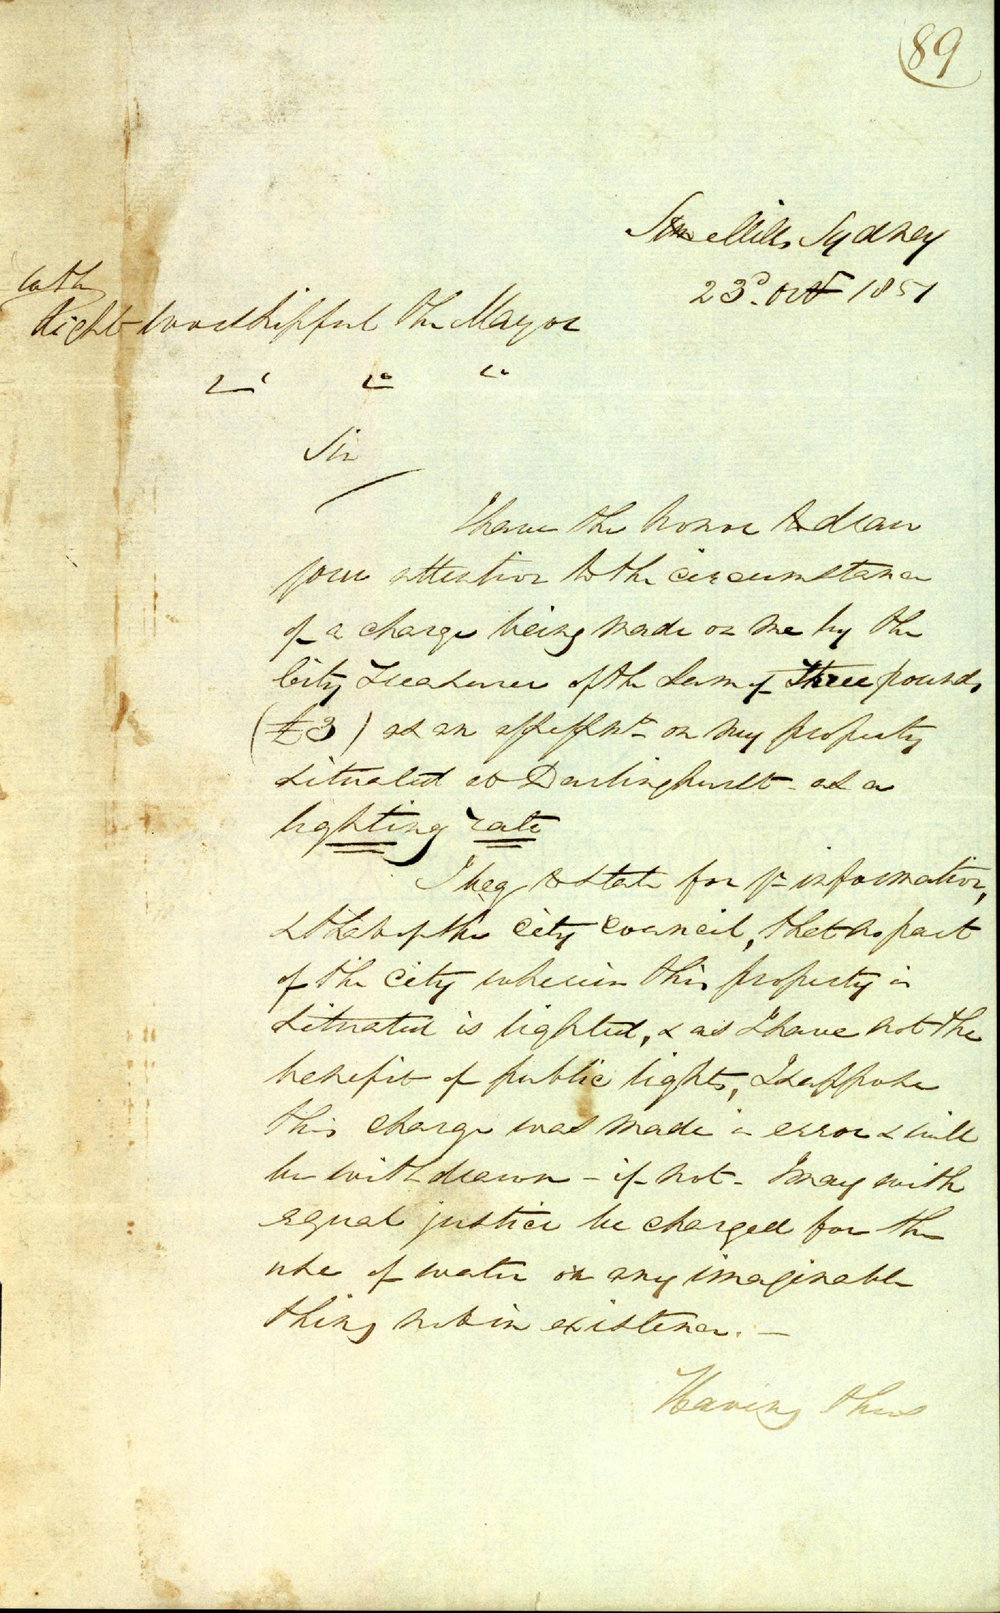 89
Stm Mills Sydney
23d. Oct 1851
To the
Right Worshipful the Mayor
&c &c &c
Sir
I have the honor to draw
your attention to the circumstance
of a charge being made on me by the
City Treasurer of the Sum of Three pounds
(£3) as an assessmt on my property
situated at Darlinghurst - as a
lighting rate
I beg to state for yr information,
& that of the City Council, that no part
of the City wherein this property is
situated is lighted, & as I have not the
benefit of public lights, I suppose
this charge was made in error & will
be withdrawn - if not - I may with
equal justice be charged for the
use of water or any imaginable
thing not in existence. -
Having thus